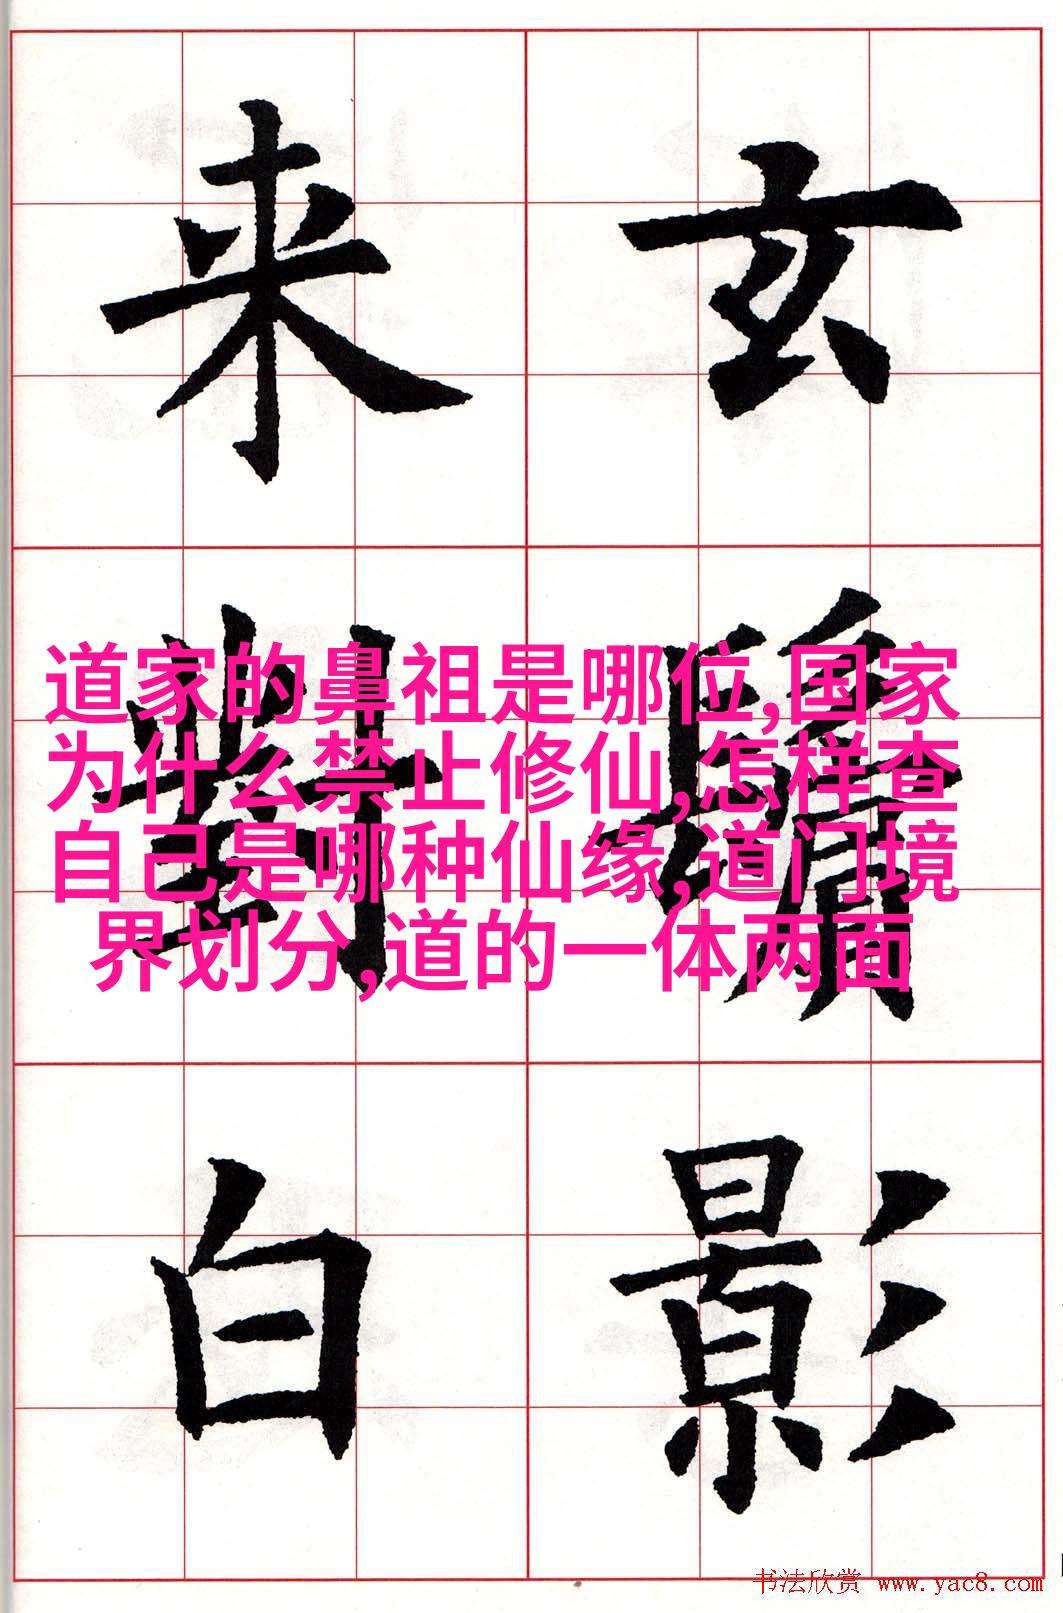 玄鬢影
来對白
道家的鼻祖是哪位,国家
为什么禁止修仙,怎样查
自己是哪种仙缘,道门境
界划分,道的一体两面
书法欣赏 www.yac8.com